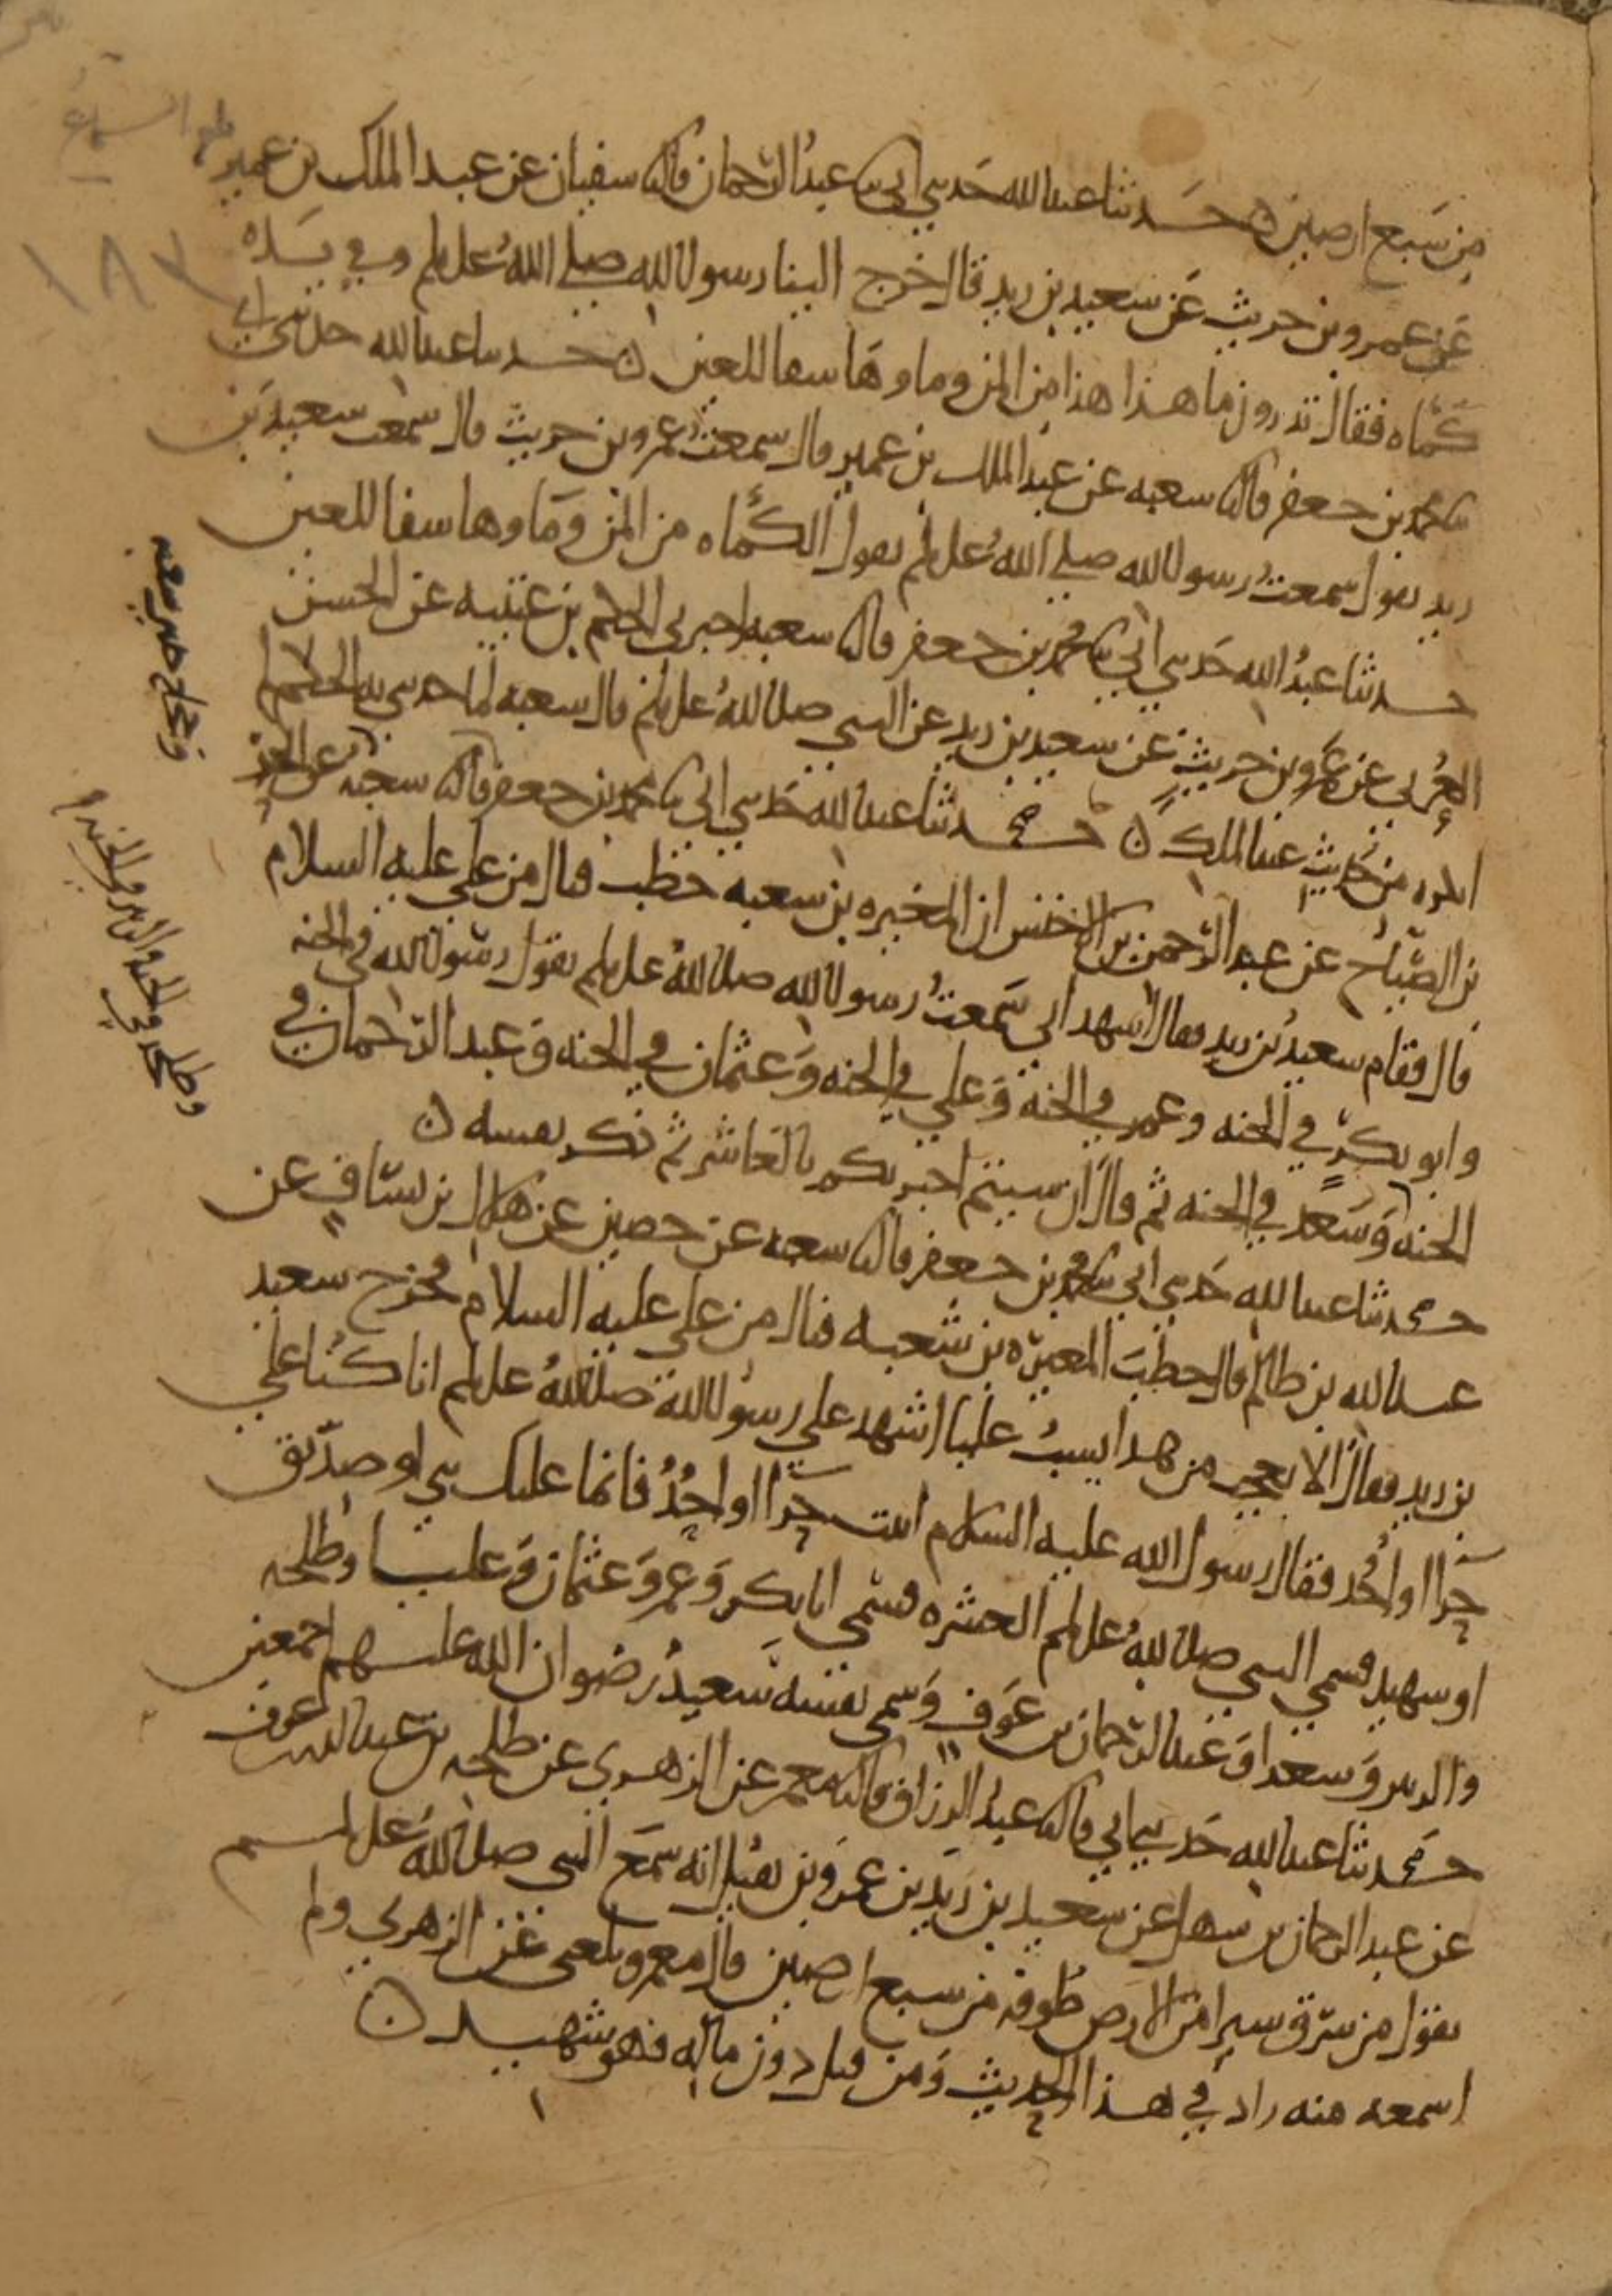 من سبع ارضين ه حدثنا عبدالله حدثني ابي ثنا عبدُ الرّحمان قال ثنا سفيان عن عبد الملك بن عمير
عن عمرو بن حريث عن سعيد بن زيد قال خرج الينا رسول الله صلى اللهُ عليه وسلم وفي يَده
كَمْأه فقال تدرون ما هذا هذا من المن وماوها شفا للعين ه حدثنا عبدالله حدثني ابي
ثنا محمد بن جعفر قال ثنا شعبه عن عبد الملك بن عمير قال سمعتُ عمرو بن حريث قال سمعت سعيد بن
زيد يقول سمعتُ رسول الله صلى اللهُ عليه وسلم يقول الكَمْأه من المن وماوها شفا للعين
حدثنا عبدُ الله حَدثني ابي ثنا محمد بن جعفر قال ثنا شعبه اخبرني الحكم بن عتيبه عن الحسن
العُرني عن عمرو بن حريث عن سعيد بن زيد عن النبي صلى اللهُ عليه وسلم قال شعبه لما حدثني به الحكم لم
انكره من حديث عبد الملك ه حدثنا عبدالله حَدثني ابي ثنا محمد بن جعفر قال ثنا شعبه عن الحر
بن الصَّيّاح عن عبد الرّحمن بن الاخنس ان المغيره بن شعبه خطب فنال من علي عليه السلام
قال فقام سعيد بن زيد فقال اشهد اني سَمعتُ رسول الله صلى اللهُ عليه وسلم يقول رسول الله في الجنه
وابو بكرٍ في الجنه وعمر في الجنه وَعلي في الجنه وَعثمان في الجنه وَعبد الرّحمان في
الجنه وَسَعد في الجنه ثم قال ان شيتم اخبرتكم بالعاشر ثم ذكر نفسه ه
حدثنا عبدالله حَدثني ابي ثنا محمد بن جعفر قال ثنا شعبه عن حصين عن هلال بن يسَاف عن
عبدالله بن ظالم قال خطبَ المغيره بن شعبه فنال من علي عليه السلام فخرج سعيد
بن زيد فقال الا تعجب من هذا يسبُ عليا اشهد على رسُول الله صلى اللهُ عليه وسلم انا كنُا على
حِرآ او اُحُد فقال رسول الله عليه السلام اثبت حِرآ او اُحُدُ فانما عليك نبي او صدّيق
او شهيد فسمى النبي صلى اللهُ عليه وسلم العشره فسمى ابا بكر وَعمر وَعثمان وَعليا وطلحه
والزبير وَسعدا وَعبد الرّحمان بن عَوف وَسمى نفسَه سَعيدُ رضوان الله عليهم اجمعين
حدثنا عبدالله حَدثني ابي قال ثنا عبدُ الرزاق قال ثنا معمر عن الزهري عن طلحه بن عبدالله بن عوف
عن عبد الرحمان بن سهل عن سعيد بن زَيد بن عمرو بن نفيل انه سمَع النبي صلى اللهُ عليه وسلم
يقول من سرَق شبرا من الارض طُوقه من سبع ارضين قال معمر وبلغني عن الزهري ولم
اسمعه منه زاد في هذا الحديث وَمن قتل دون ماله فهو شهيد ه
١٨٧